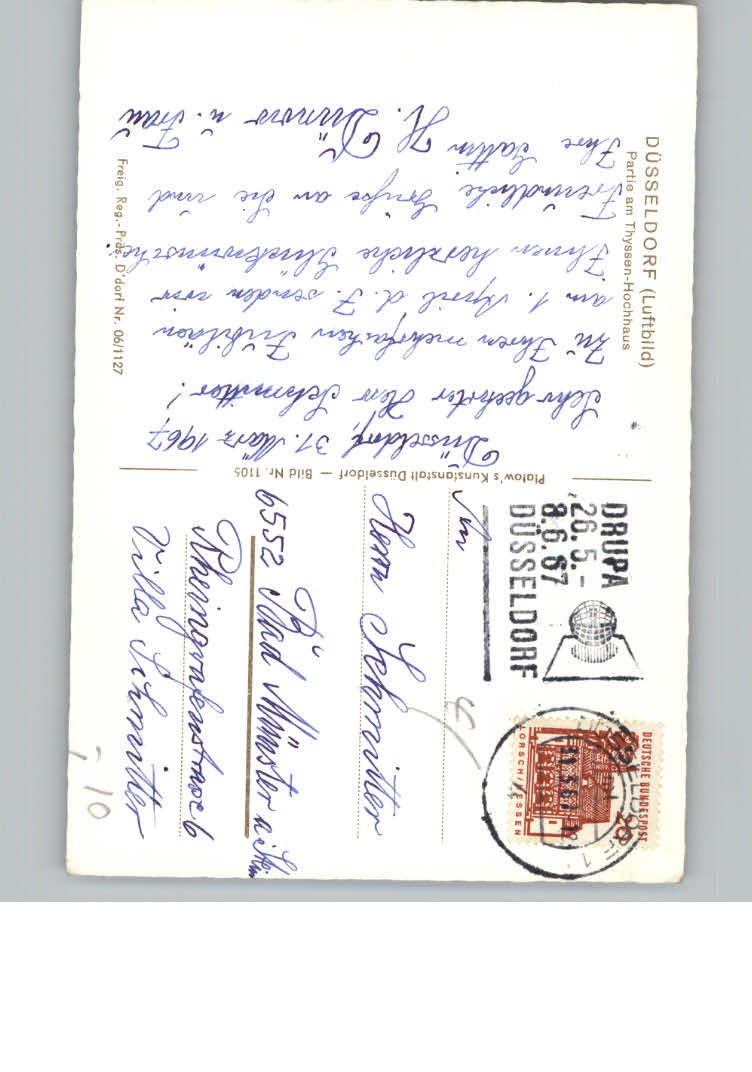 DÜSSELDORF (Luftbild)
Partie am Thyssen-Hochhaus
Düsseldorf, 31. März 1967
Sehr geehrter Herr Schmitter!
Zu Ihren mehrfachen Jubiläen
am 1. April d. J. senden wir
Ihnen herzliche Glückwünsche.
Freundliche Grüße an Sie und
Ihre Gattin
H. u. Frau
Freig. Reg.-Präs. D'dorf Nr. 06/1127
Platow's Kunstanstalt Düsseldorf — Bild Nr. 1105
DRUPA
26.5.-
8.6.67
DÜSSELDORF
DEUTSCHE BUNDESPOST
20
LORSCH/HESSEN
DÜSSELDORF 1
An
Herrn Schmitter
6552 Bad Münster a. Stein
Rheingrafenstrasse 6
Villa Schmitter
-,10